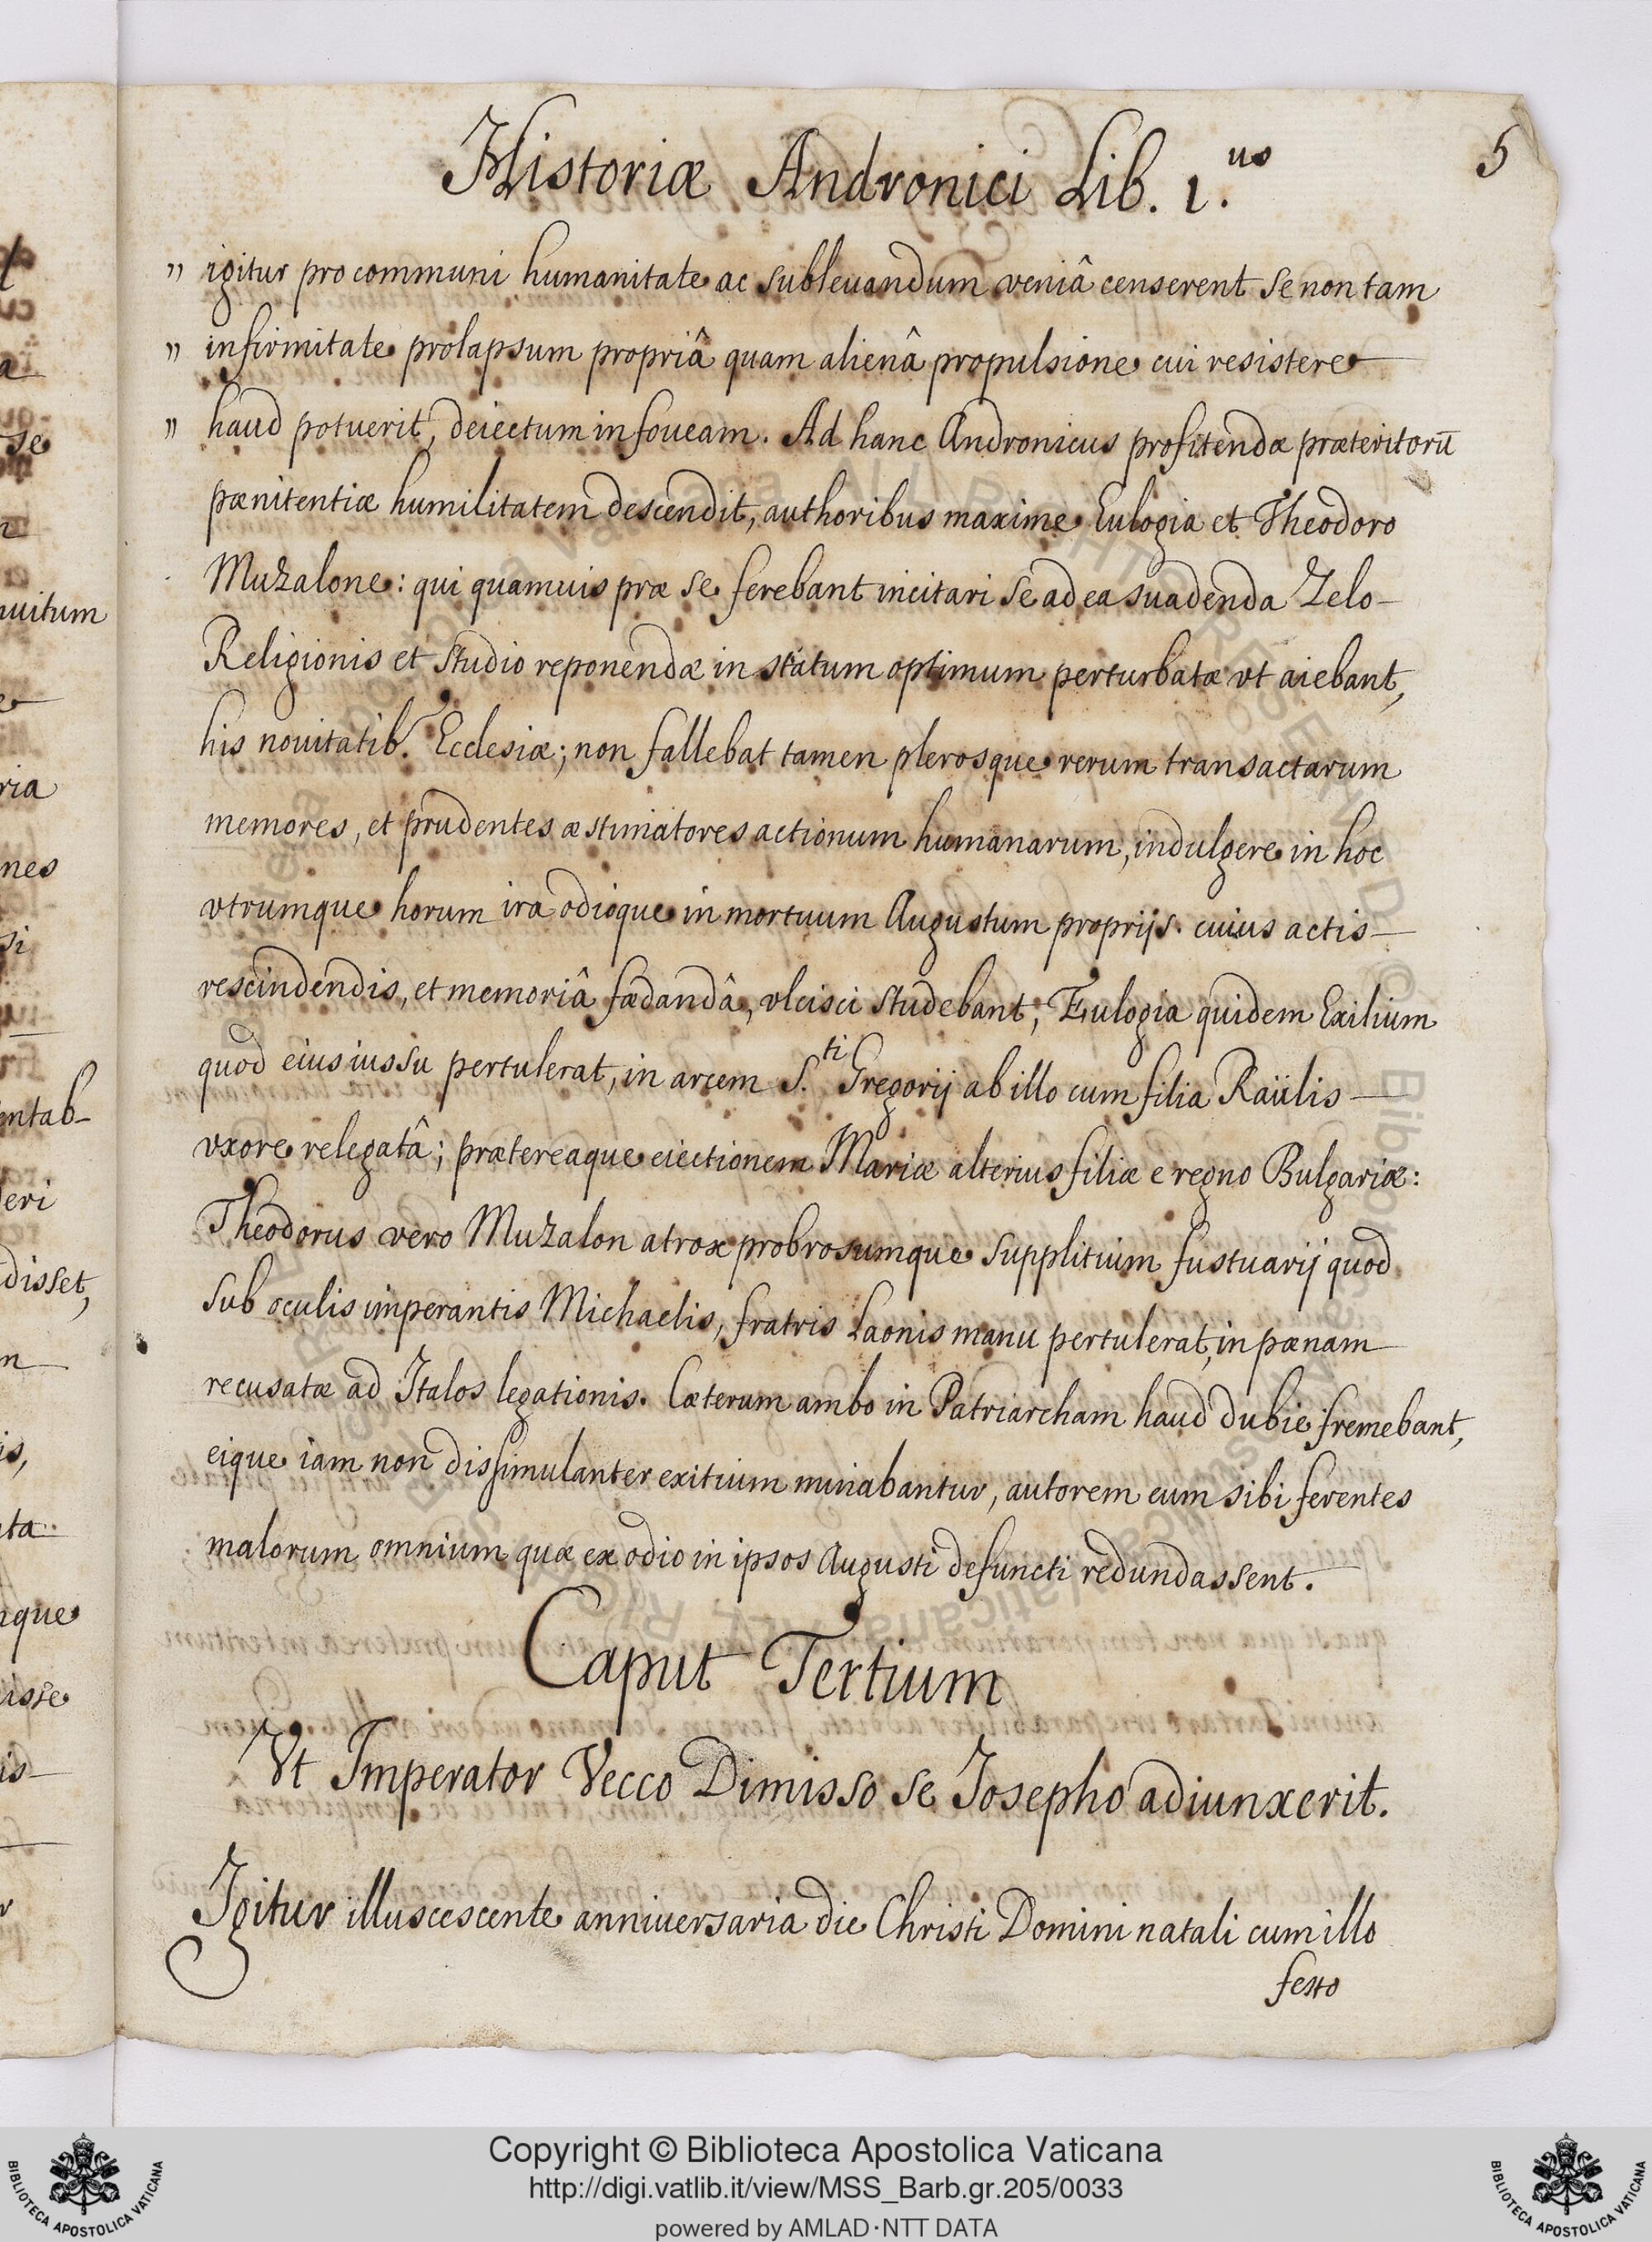 Historiæ Andronici Lib. 1.us
5
" igitur pro communi humanitate ac subleuandum veniâ censerent se non tam
" infirmitate prolapsum propriâ quam alienâ propulsione cui resistere
" haud potuerit, deiectum in foueam. Ad hanc Andronicus profitendæ præteritorū
pænitentiæ humilitatem descendit, authoribus maxime Eulogia et Theodoro
Muzalone: qui quamuis præ se ferebant incitari se ad ea suadenda Zelo
Religionis et studio reponendæ in statum optimum perturbatæ vt aiebant,
his nouitatib. Ecclesiæ; non fallebat tamen plerosque rerum transactarum
memores, et prudentes æstimatores actionum humanarum, indulgere in hoc
vtrumque horum iræ odioque in mortuum Augustum proprijs. cuius actis
rescindendis, et memoriâ fœdandâ, vlcisci studebant; Eulogia quidem Exilium
quod eius iussu pertulerat, in arcem S.ti Gregorij ab illo cum filia Raülis
vxore relegatâ; prætereaque eiectionem Mariæ alterius filiæ e regno Bulgariæ:
Theodorus vero Muzalon atrox probrosumque supplitium fustuarij quod
sub oculis imperantis Michaelis, fratris Laonis manu pertulerat, in pœnam
recusatæ ad Italos legationis. Cæterum ambo in Patriarcham haud dubie fremebant,
eique iam non dissimulanter exitium minabantur, autorem eum sibi ferentes
malorum omnium quæ ex odio in ipsos Augusti defuncti redundassent.
Caput Tertium
Vt Imperator Vecco Dimisso se Josepho adiunxerit.
Igitur illuscescente anniuersaria die Christi Domini natali cum illo
festo
Copyright © Biblioteca Apostolica Vaticana
http://digi.vatlib.it/view/MSS_Barb.gr.205/0033
powered by AMLAD·NTT DATA
BIBLIOTECA APOSTOLICA VATICANA
BIBLIOTECA APOSTOLICA VATICANA